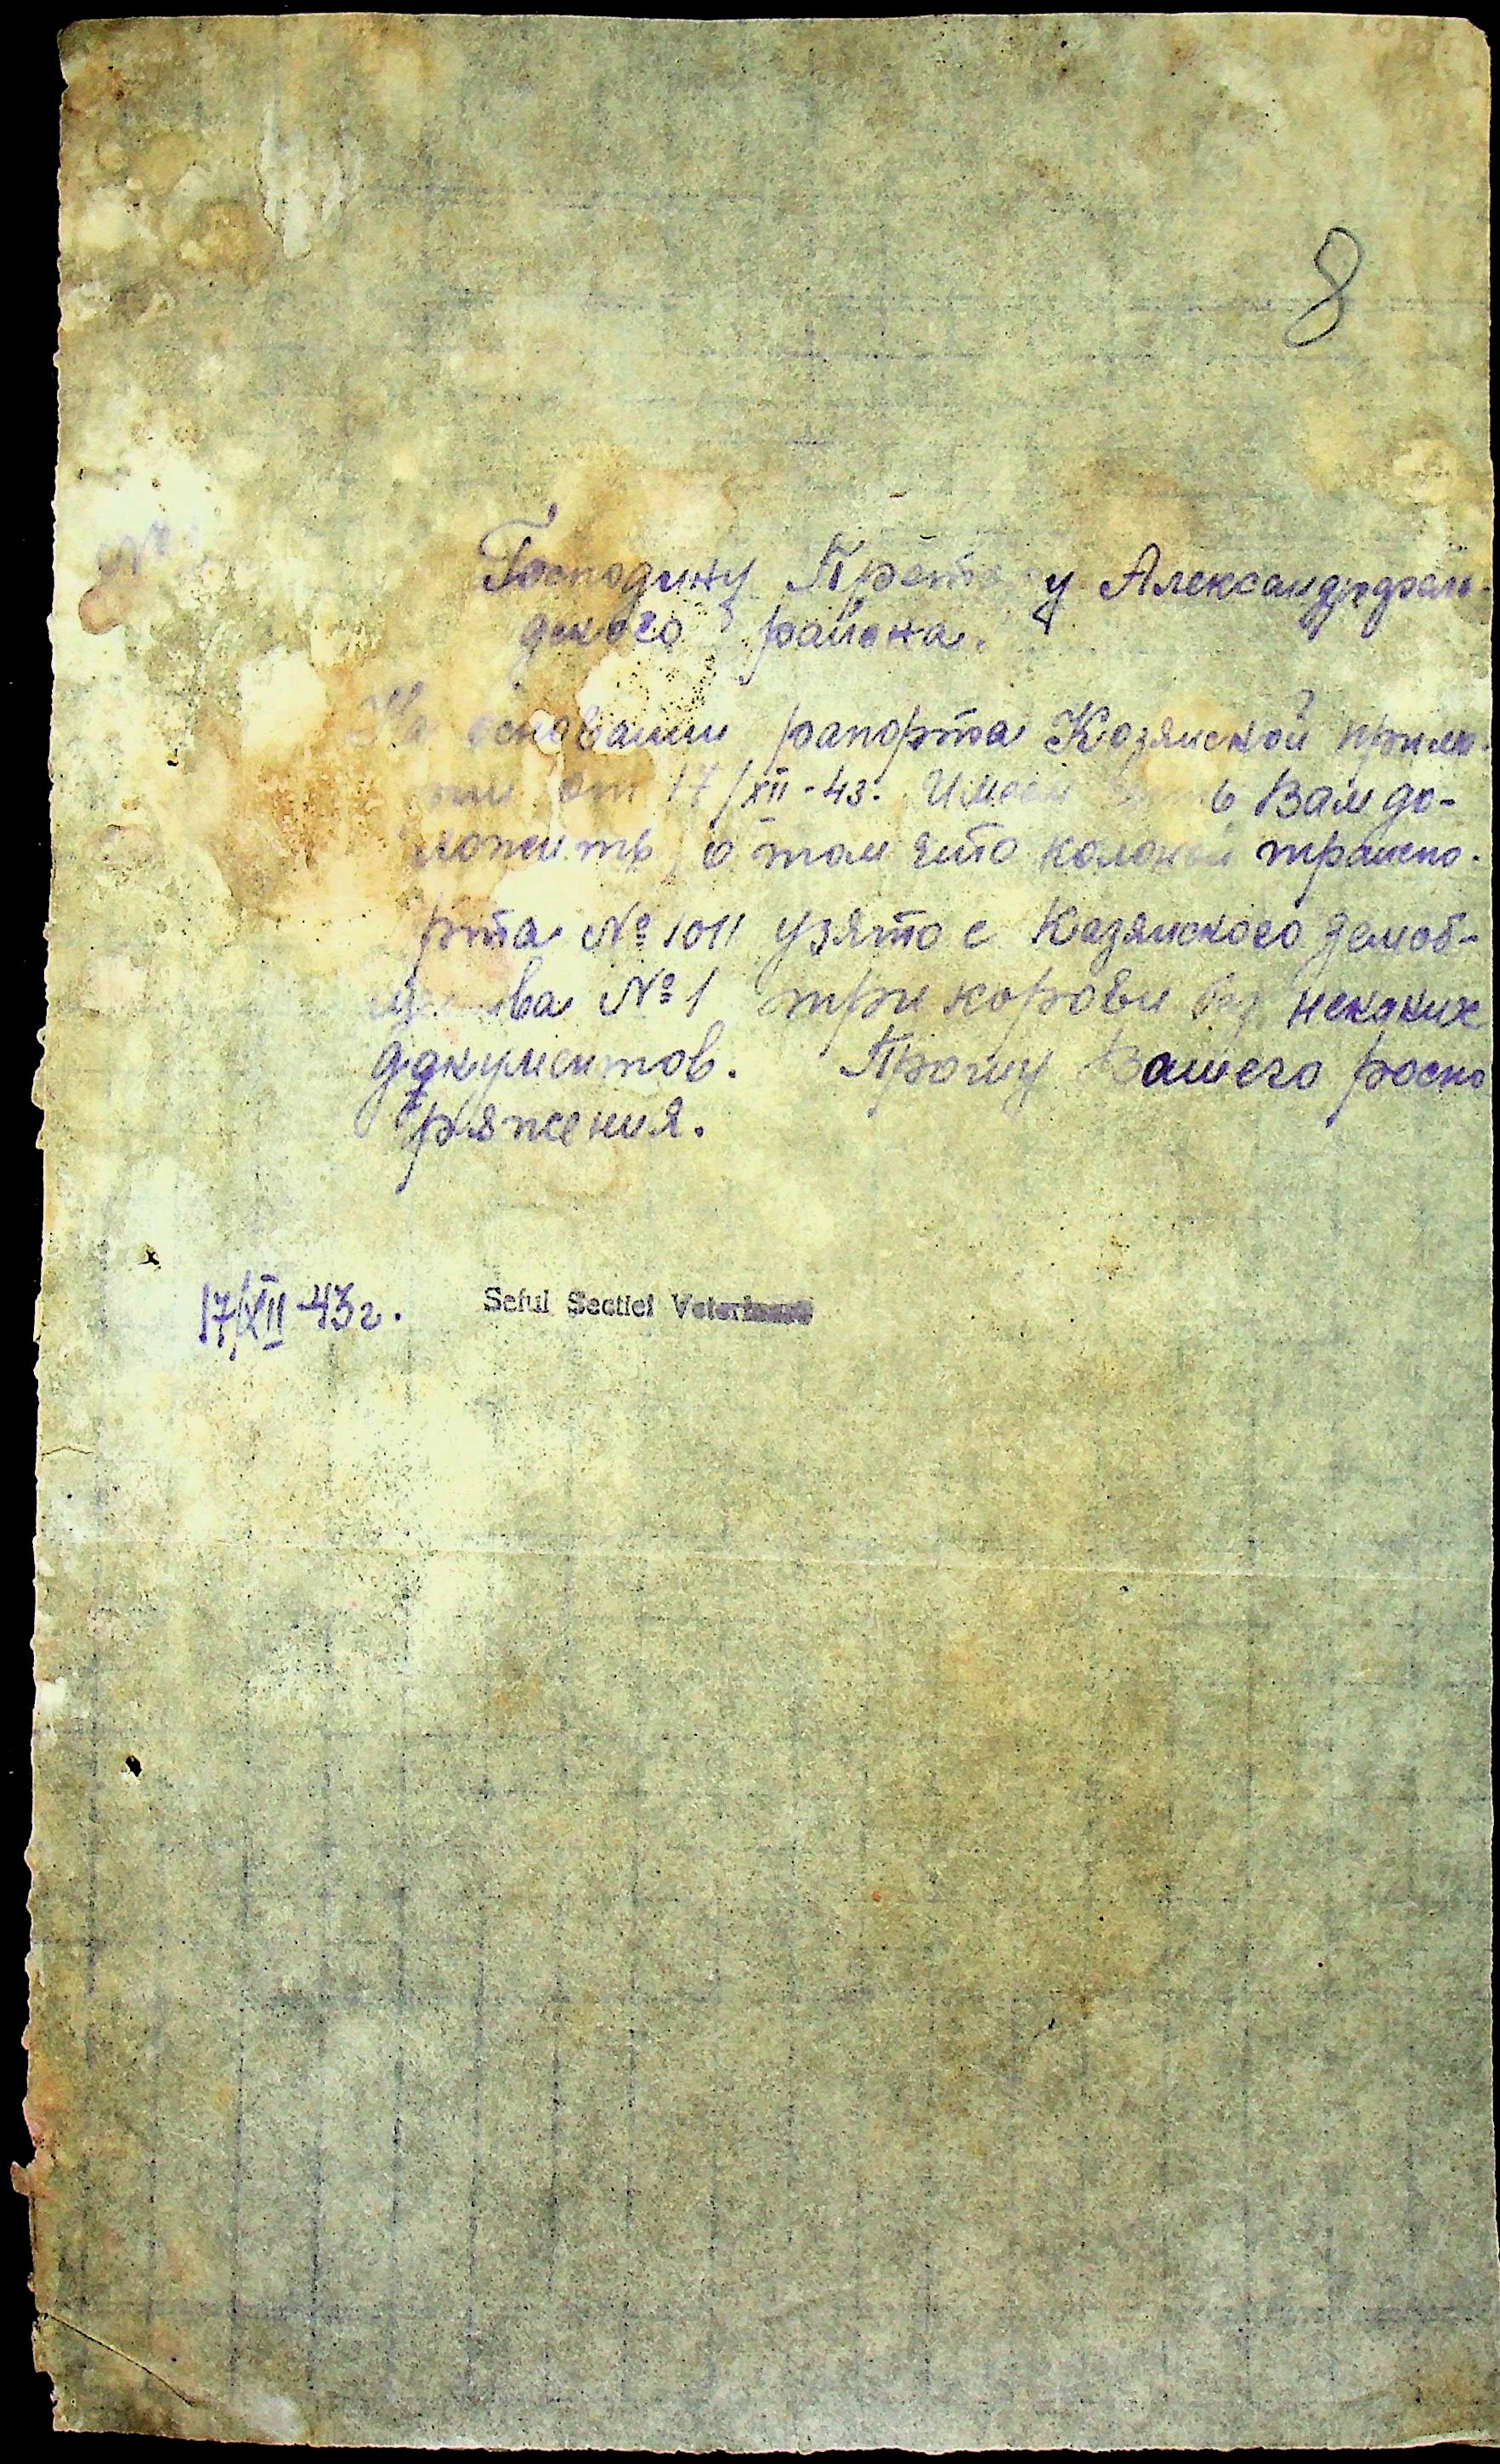 8
№
Господину Претору Александрфель-
дского района.
На основании рапорта Козянской прима-
рии от 17/XII-43. Имею Вам до-
ложить, о том што колоной транспо-
рта № 1011 узято с Казянского земоб-
щества № 1 три корови без некаких
документов. Прошу Вашего роспо
ряжения.
17/XII-43г. Seful Sectiei Veterinare